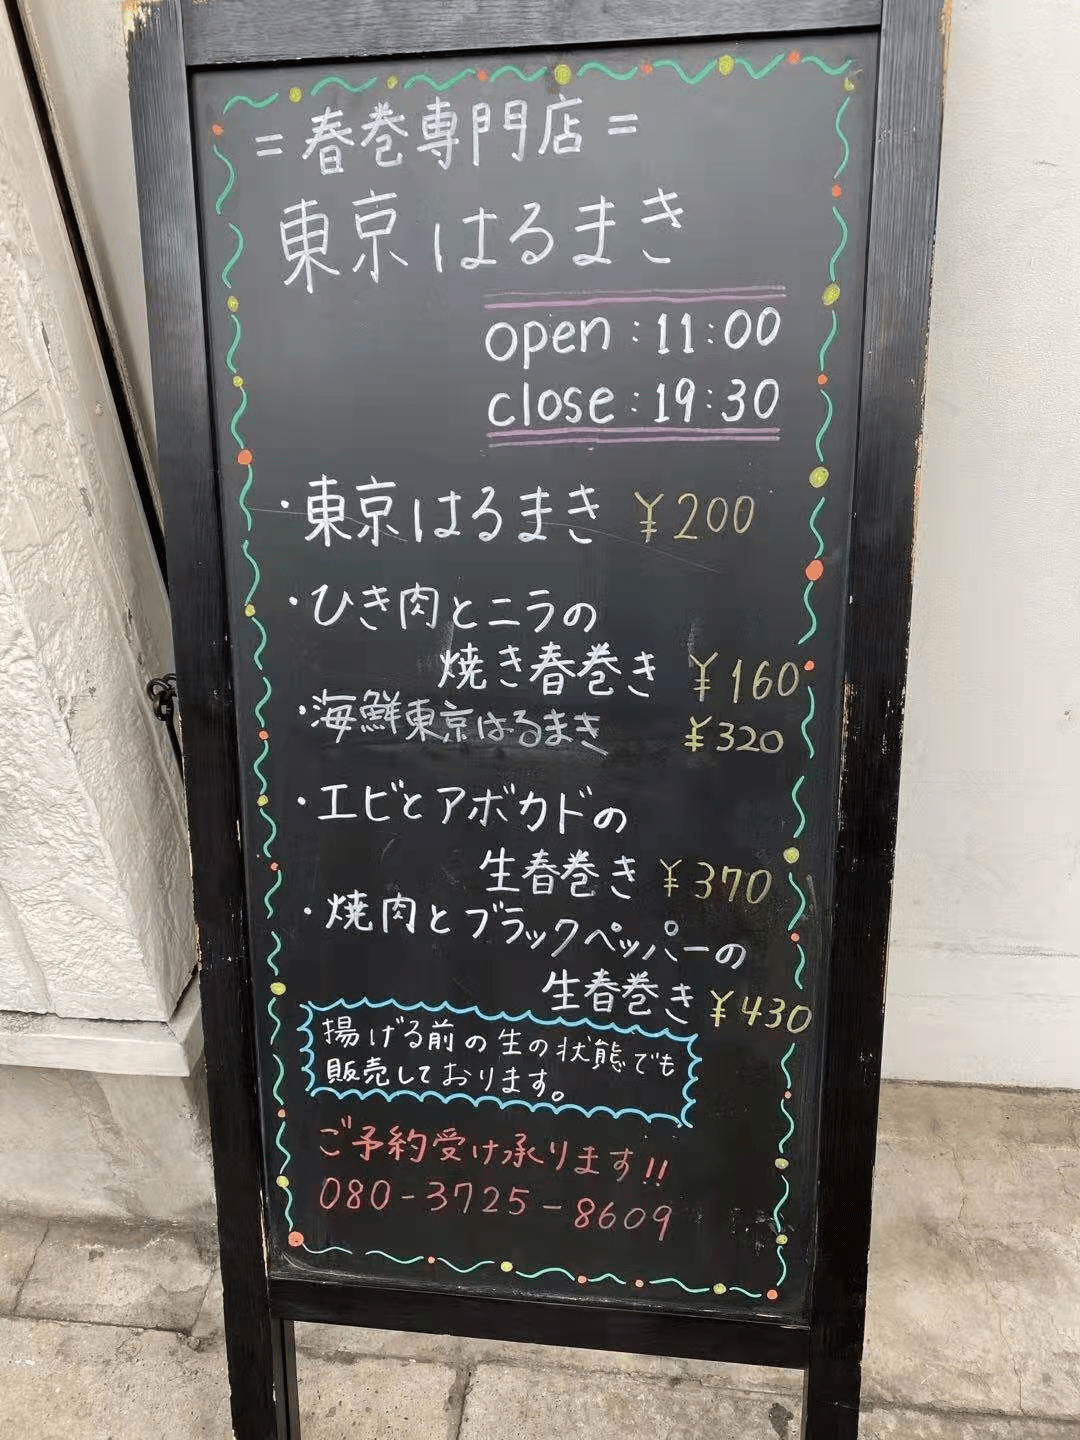 =春巻専門店=
東京はるまき
open:11:00
close:19:30
・東京はるまき ¥200
・ひき肉とニラの
焼き春巻き ¥160
・海鮮東京はるまき ¥320
・エビとアボカドの
生春巻き ¥370
・焼肉とブラックペッパーの
生春巻き ¥430
揚げる前の生の状態でも
販売しております。
ご予約受け承ります!!
080-3725-8609